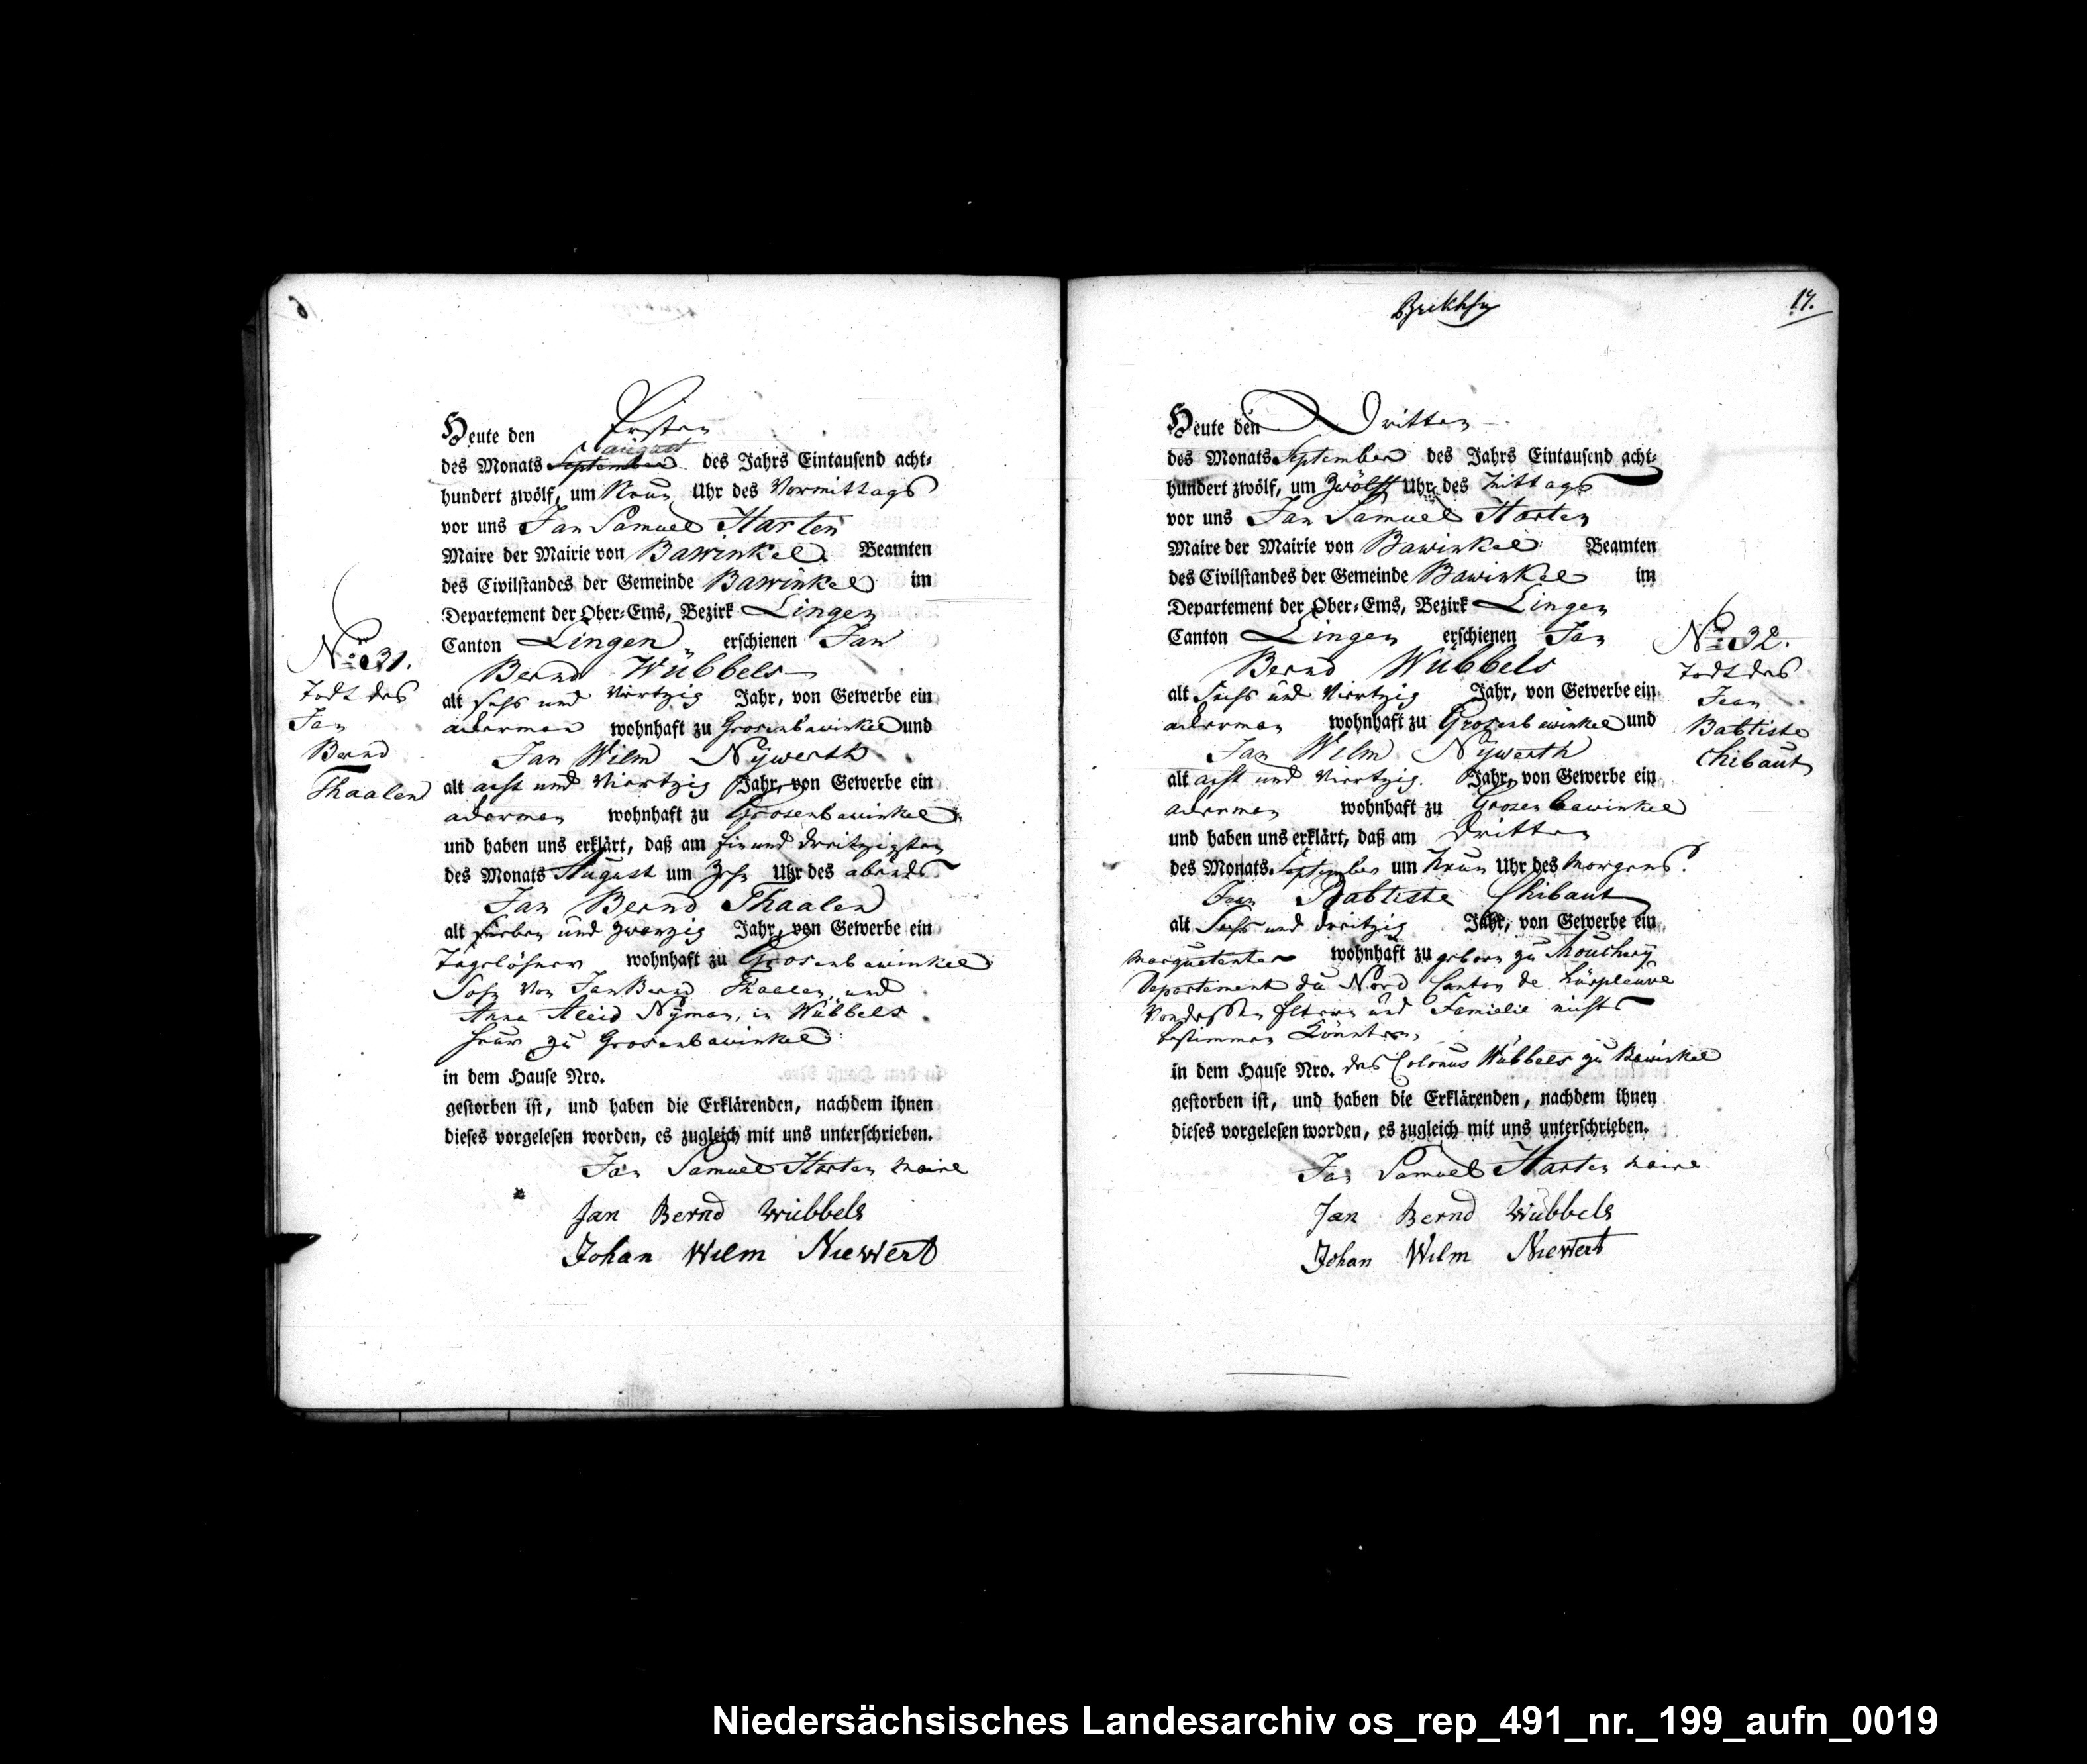 Heute den Ersten
august
des Monats September des Jahrs Eintausend acht-
hundert zwölf, um Neun Uhr des Vormittags
vor uns Jan Samuel Harten
Maire der Mairie von Bawinkel Beamten
des Civilstandes der Gemeinde Bawinkel im
Departement der Ober-Ems, Bezirk Lingen
Canton Lingen erschienen Jan
Bernd Wübbels
alt sechs und Viertzig Jahr, von Gewerbe ein
ackerman wohnhaft zu Grosenbawinkel und
Jan Wilm Nÿwerth
alt acht und Viertzig Jahr, von Gewerbe ein
ackerman wohnhaft zu Grosenbawinkel
und haben uns erklärt, daß am einund dreitzigsten
des Monats August um Zehn Uhr des abends
Jan Bernd Thaalen
alt sieben und zwanzig Jahr, von Gewerbe ein
Tagelöhner wohnhaft zu Grosenbawinkel
Sohn von Jan Bernd Thaalen und
Anna Aleid Nÿman, in Wübbels
heuer zu Grosenbawinkel
in dem Hause Nro.
gestorben ist, und haben die Erklärenden, nachdem ihnen
dieses vorgelesen worden, es zugleich mit uns unterschrieben.
Jan Samuel Harten maire
Jan Bernd Wübbels
Johan Wilm Niewert
No 31.
Todt des
Jan
Bernd
Thaalen
17.
Heute den Dritten
des Monats September des Jahrs Eintausend acht-
hundert zwölf, um Zwölff Uhr des Mittags
vor uns Jan Samuel Harten
Maire der Mairie von Bawinkel Beamten
des Civilstandes der Gemeinde Bawinkel im
Departement der Ober-Ems, Bezirk Lingen
Canton Lingen erschienen Jan
Bernd Wübbels
alt Sechs und Viertzig Jahr, von Gewerbe ein
ackerman wohnhaft zu Grosenbawinkel und
Jan Wilm Nÿwerth
alt acht und Viertzig Jahr, von Gewerbe ein
ackerman wohnhaft zu Grosenbawinkel
und haben uns erklärt, daß am dritten
des Monats September um Neun Uhr des Morgens
Jean Babtiste Chibaut
alt Sechs und dreitzig Jahr, von Gewerbe ein
Marquetenter wohnhaft zu geboren zu Mouchery
Departement du Nord Canton de
Von dessen Eltern und Familie nichts
bestimmen Könnten,
in dem Hause Nro. des Colonus Wübbels zu Bawinkel
gestorben ist, und haben die Erklärenden, nachdem ihnen
dieses vorgelesen worden, es zugleich mit uns unterschrieben.
Jan Samuel Harten maire
Jan Bernd Wübbels
Johan Wilm Niewert
No 32.
Todt des
Jean
Babtiste
Chibaut
Niedersächsisches Landesarchiv os_rep_491_nr._199_aufn_0019